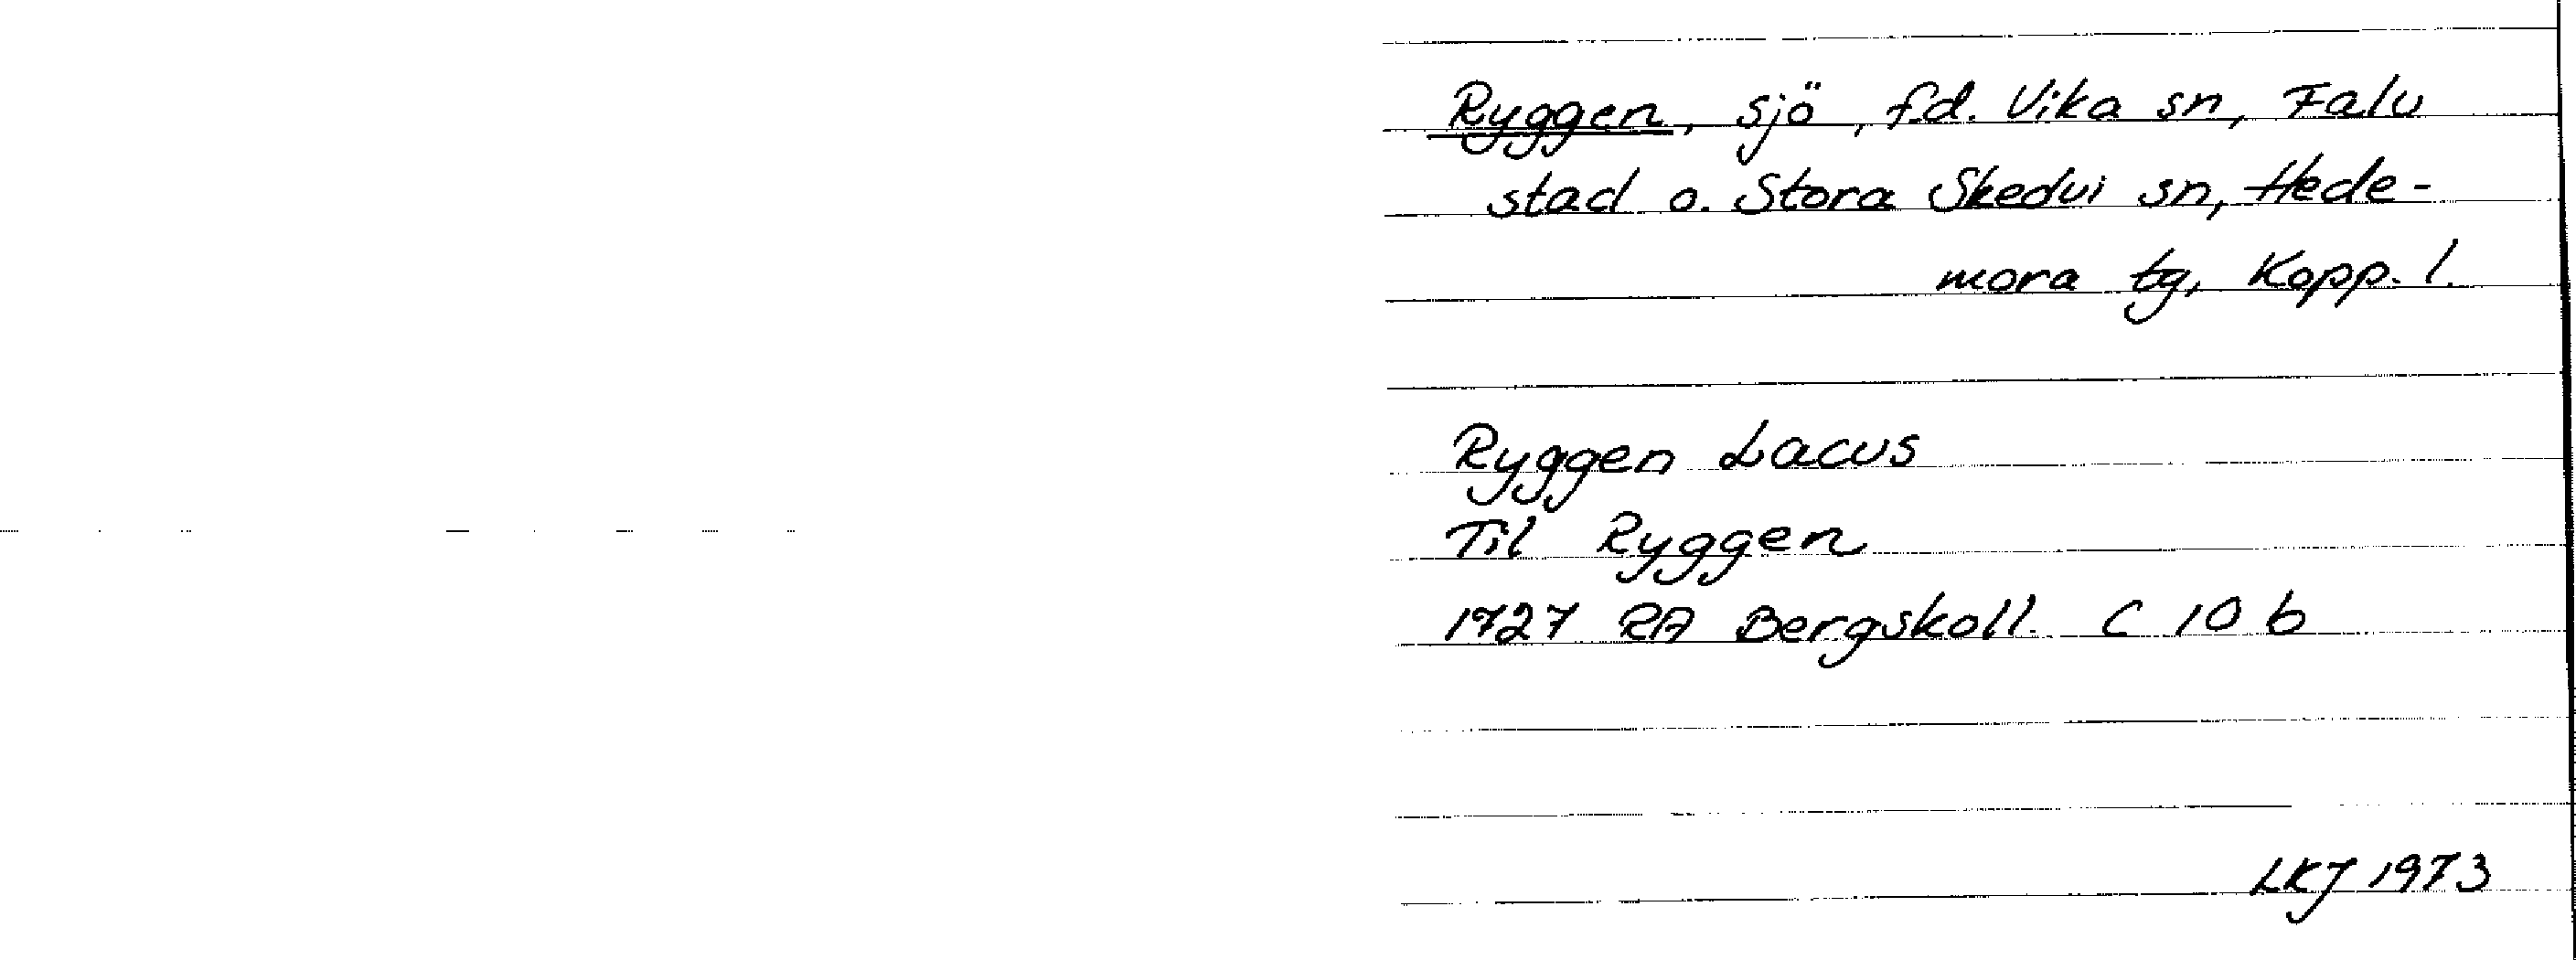 Ryggen, sjö, f.d. Vika sn, Falu
stad o. Stora Skedvi sn, Hede-
mora tg, Kopp. l.
Ryggen Lacus
Til Ryggen
1727 RA Bergskoll. C 10 b
LKJ 1973